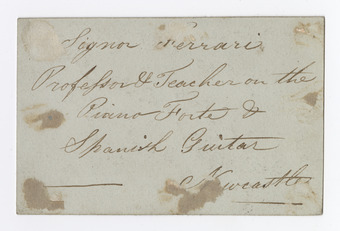 Signor Ferrari
Professor & Teacher on the
Piano Forte &
Spanish Guitar
Newcastle